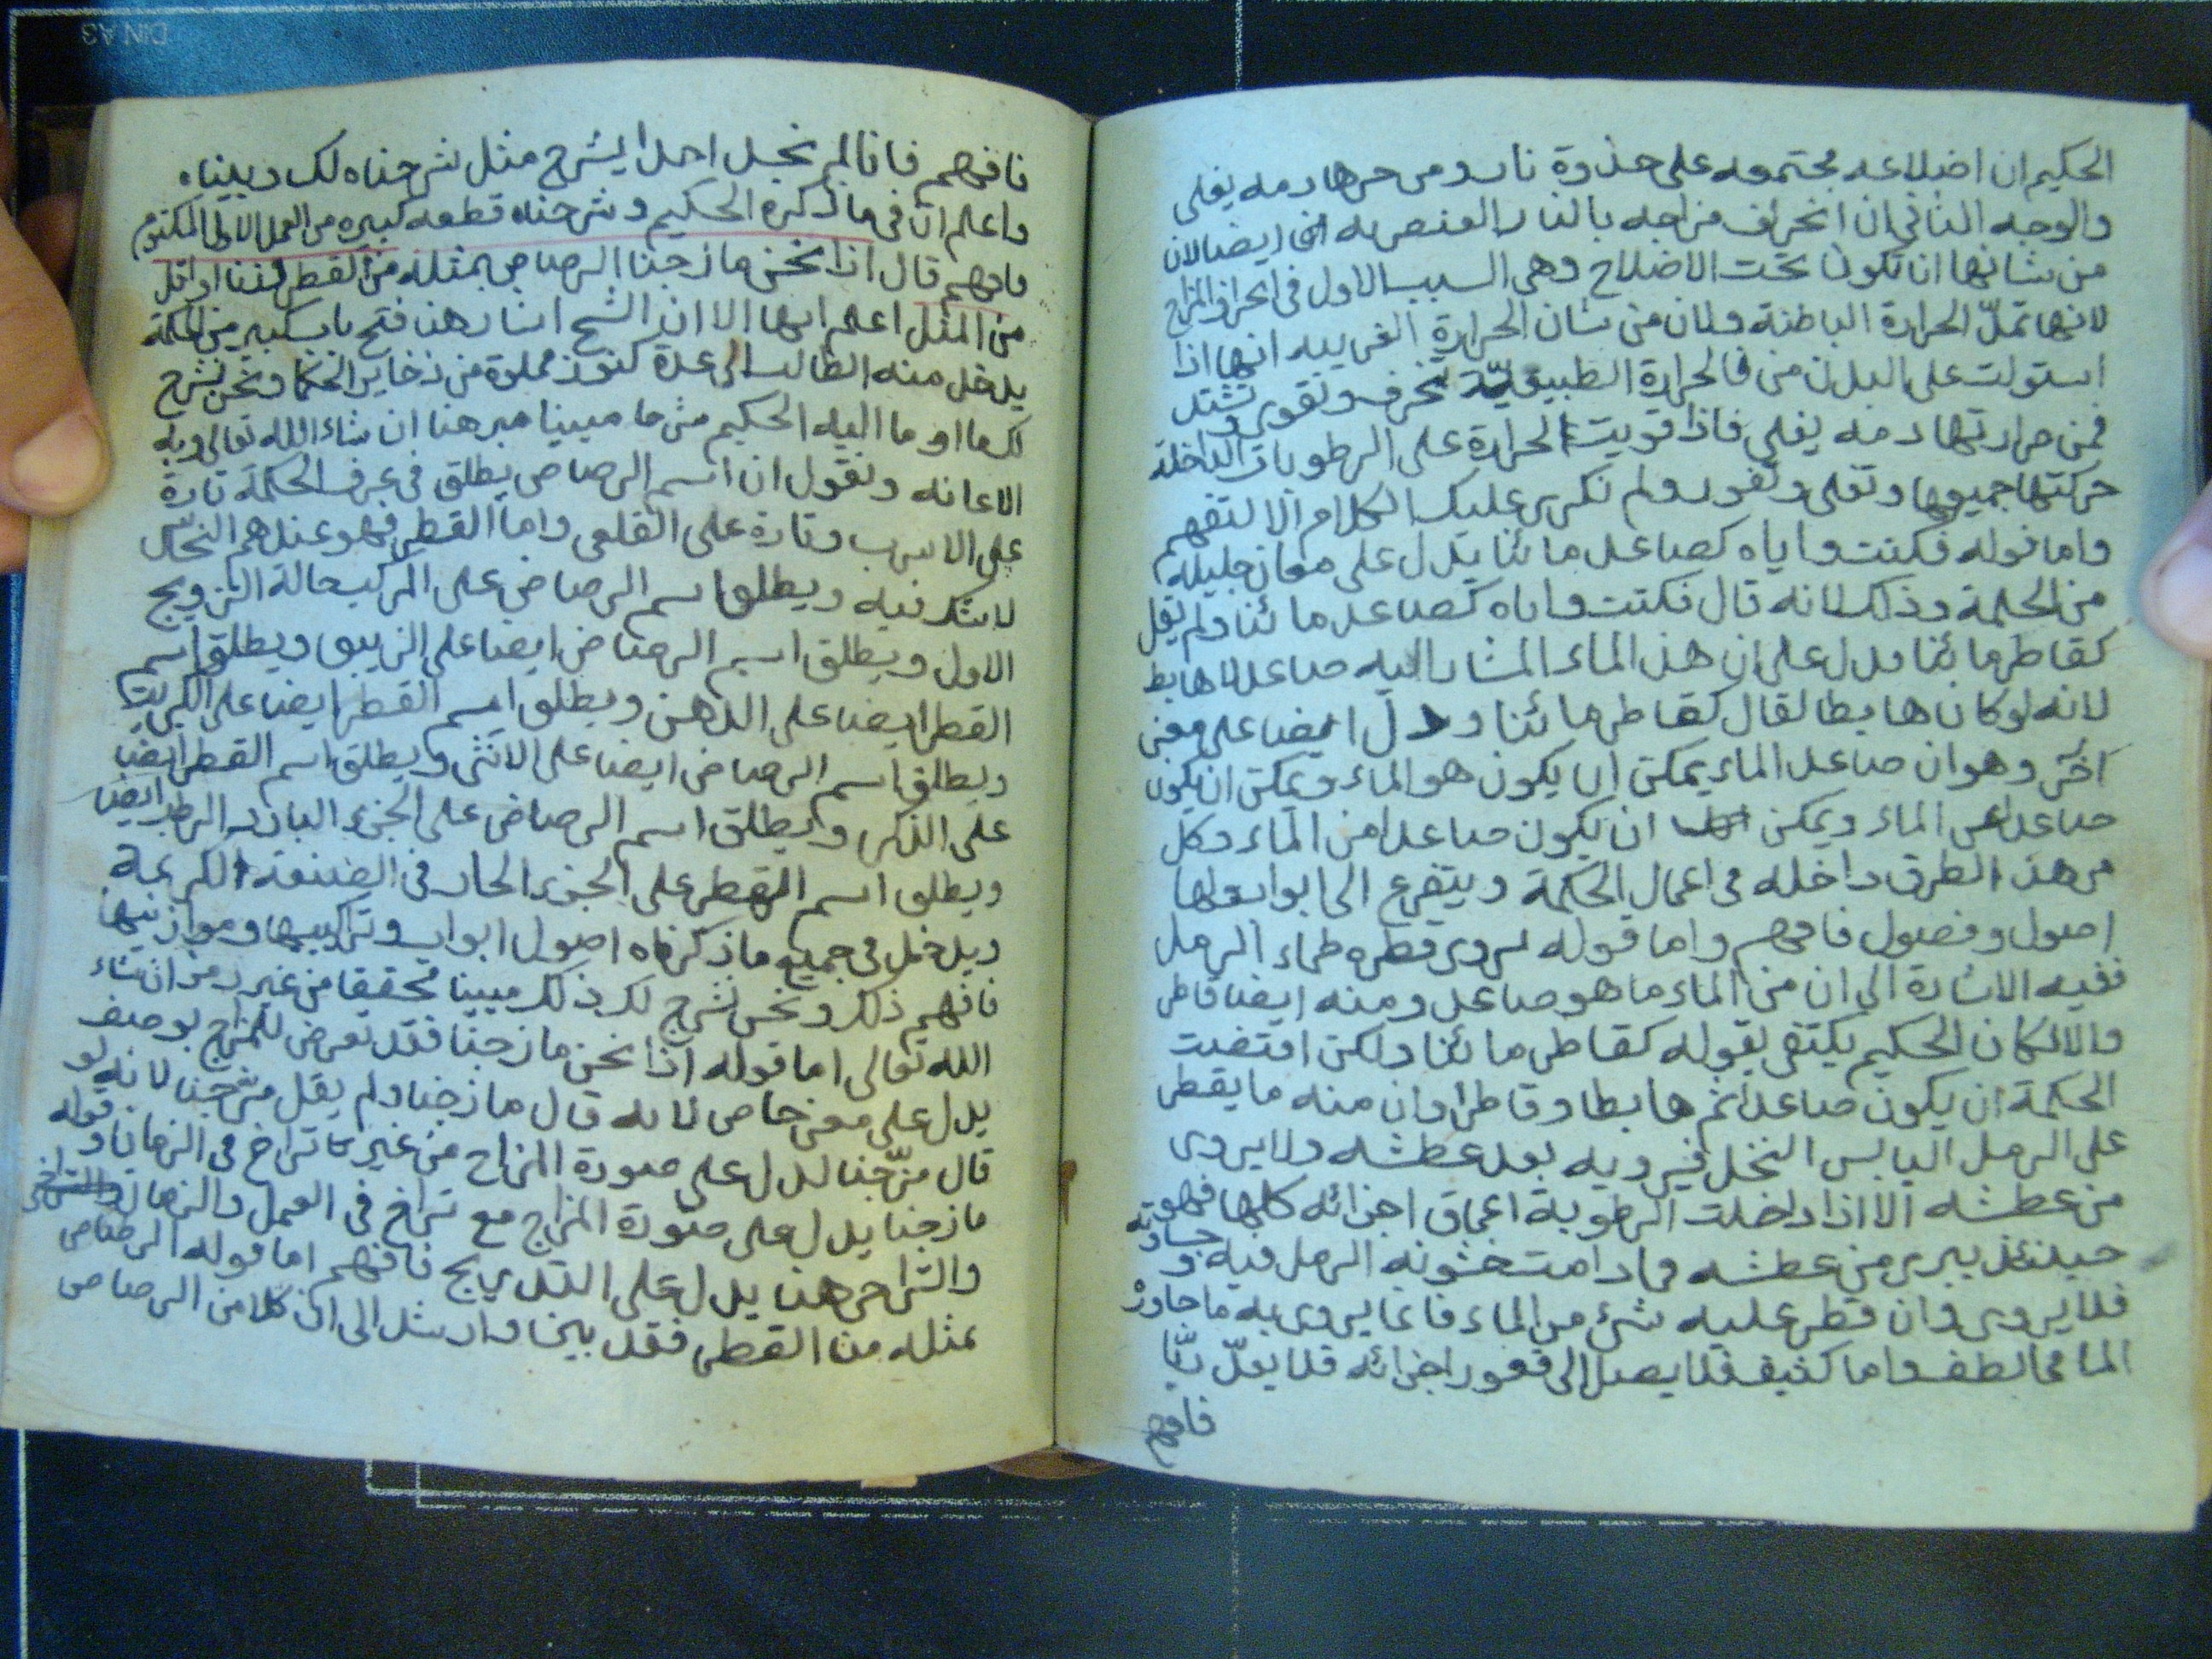 الحكيم ان اضلاعه مجتمعه على جذوة نار ومن حرها دمه يغلى
والوجه الثاني ان انحراف مزاجه بالنار العنصريه ايضا لان
من شانها ان تكون تحت الاضلاع وهى السبب الاول فى انحراف المزاج
لانها تملّ الحرارة الباطنة ولان من شان الحرارة الغريبيه انها اذا
استولت على البدن من فالحرارة الطبيعيّة تنحرف وتقوى وتشتد
فمن حرارتها دمه يغلى فاذا قويت الحرارة على الرطوبات الداخلة
حركتها جميعها وتغلى وتفور ولم نكرر عليك الكلام الا لتفهم
واما قوله فكنت واياه كصاعد مائنا يدل على معان جليله
من الحكمة وذلك لانه قال فكنت واياه كصاعد مائنا ولم يقل
كقاطر مائنا فدل على ان هذا الماء المشار اليه صاعد لا هابط
لانه لو كان هابطا لقال كقاطر مائنا ودل ايضا على معنى
اخر وهو ان صاعد الماء يمكن ان يكون هو الماء ويمكن ان يكون
صاعدا عن الماء ويمكن ان يكون صاعدا من الماء وكل
من هذه الطرق داخله فى اعمال الحكمة ويتفرع الى ابواب ولها
اصول وفصول فافهم واما قوله يروى قطره ظماء الرمل
ففيه الاشارة الى ان من الماء ما هو صاعد ومنه ايضا قاطر
والا لكان الحكيم يكتفى بقوله كقاطر مائنا ولكن اقتضت
الحكمة ان يكون صاعدا ثم هابطا وقاطرا وان منه ما يقطر
على الرمل اليابس النخل فيرويه بعد عطشه ولا يروى
من عطشه الا اذا داخلت الرطوبة اعماق اجزائه كلها فهو
حينئذ يبرى من عطشه فما دامت خشونة الرمل فيه و جساوته
فلا يروى وان قطر عليه شئ من الماء فانما يروى به ما جاوز
الماء مما لطف واما كثيف فلا يصل الى قعور اجزائه فلا يعدّ ريّا
فافهم
فافهم فانا لم نجد احدا يشرح مثل شرحناه لك وبيناه
واعلم ان فى ما ذكره الحكيم وشرحناه قطعه كبيره من العمل الاول المكتوم
فافهم قال اذا نحن مازجنا الرصاص بمثله من القطر وزنا او اقل
من المثل اعلم ايها الاخ ان الشيخ اشار هنا فتح باب كبير من الحكمة
يدخل منه الطالب الى عدة كنوز مملوة من ذخاير الحكما ونحن نشرح
لك ما اوما اليه الحكيم شرحا مبينا مبرهنا ان شاء الله تعالى وبه
الاعانه ونقول ان اسم الرصاص يطلق فى عرف الحكمة تارة
على الاسرب وتارة على القلعى واما القطر فهو عندهم النحاس
لا شك فيه ويطلق اسم الرصاص على المركب حالة التزويج
الاول ويطلق اسم الرصاص ايضا على الزيبق ويطلق اسم
القطر ايضا على الدهن ويطلق اسم القطر ايضا على الكبريت
ويطلق اسم الرصاص ايضا على الانثى ويطلق اسم القطر ايضا
على الذكر ويطلق اسم الرصاص على الجزء البارد الرطب ايضا
ويطلق اسم القطر على الجزء الحار فى الصنعة الكريمة
ويدخل فى جميع ما ذكرناه اصول ابواب وتراكيبها وموازنيها
فافهم ذلك ونحن نشرح لك ذلك مبينا محققا من غير رمز ان شاء
الله تعالى اما قوله اذا نحن مازجنا فقد تعرض للمزاج بوصف
يدل على معنى خاص لانه قال مازجنا ولم يقل مزّجنا لانه لو
قال مزّجنا لدل على صورة المزاج من غير تراخ فى الزمان وقوله
مازجنا يدل على صورة المزاج مع تراخ فى العمل والزمان
والتراخى هنا يدل على التدريج فافهم اما قوله الرصاص
بمثله من القطر فقد بين وارشد الى ان كلا من الرصاص